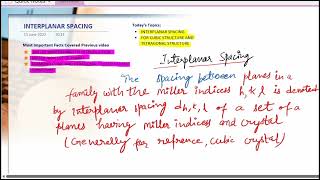 INTERPLANAR SPACING
15 June 2020
Most Important Facts Covered Previous video
Today's Topics:
INTERPLANAR SPACING
FOR CUBIC STRUCTURE AND
TETRAGONAL STRUCTURE
Interplanar Spacing
The spacing between planes in a
family with the miller indices h,k,l is denoted
by interplanar spacing dh,k,l of a set of a
planes having miller indices and crystal
(Generelly for refrence, cubic crystal)